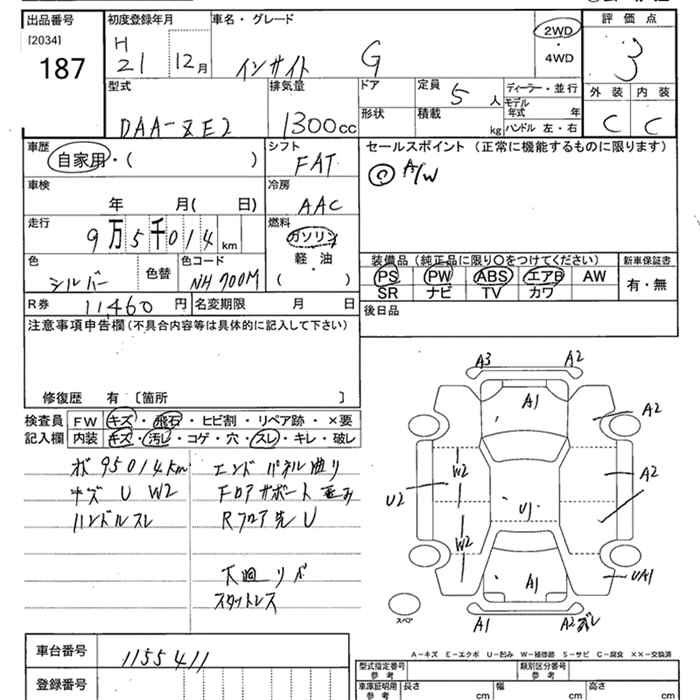 出品番号
[2034]
187
初度登録年月
H
21 12月
車名・グレード
インサイト G
2WD
・
4WD
評価点
3
外装 内装
C C
型式
DAA-ZE2
排気量
1300cc
ドア
定員
5人
ディーラー・並行
モデル
年式 年
形状
積載
kg
ハンドル 左・右
車歴
自家用・( )
シフト
FAT
セールスポイント (正常に機能するものに限ります)
◎ A/W
車検
年 月( 日)
冷房
AAC
走行
9万5千014km
燃料
ガソリン
軽・油
( )
色
シルバー
色替
色コード
NH700M
装備品(純正品に限り○をつけてください)
新車保証書
PS PW ABS エアB AW
SR ナビ TV カワ
有・無
R券 11,460円
名変期限 月 日
後日品
注意事項申告欄(不具合内容等は具体的に記入して下さい)
修復歴 有 〔箇所 〕
検査員
記入欄
FW キズ・飛石・ヒビ割・リペア跡・×要
内装 キズ・汚レ・コゲ・穴・スレ・キレ・破レ
オド 95014km
キズ U W2
ハンドルスレ
エンドパネル曲り
Fロアサポート歪み
Rフロア先U
下廻リサビ
スタットレス
A3 A2
A1
A2
A2
W2
U2
U1
W2
A1
UA1
スペア
A1
A2ズレ
A-キズ E-エクボ U-凹み W-補修跡 S-サビ C-腐食 XX-交換済
車台番号
1155411
登録番号
型式指定番号
参考
類別区分番号
参考
車庫証明用
参考
長さ cm
幅 cm
高さ cm